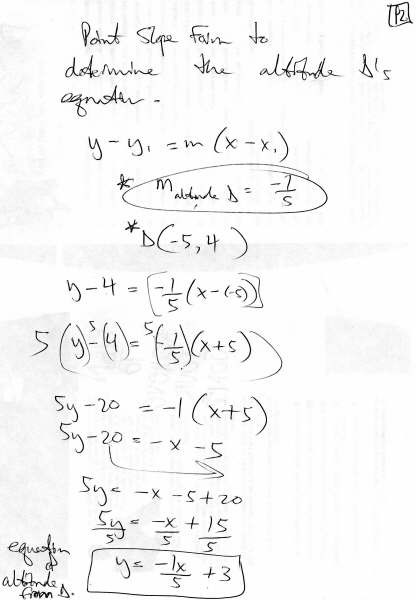 P2
Point Slope Form to
determine the altitude D's
equation.
y - y₁ = m (x - x₁)
* m altitude D = -1/5
* D(-5, 4)
y - 4 = [-1/5 (x - (-5))]
5 (y) - 5 (4) = 5 (-1/5) (x + 5)
5y - 20 = -1 (x + 5)
5y - 20 = -x - 5
5y = -x - 5 + 20
5y/5 = -x/5 + 15/5
y = -1x/5 + 3
equation
of
altitude
from D.